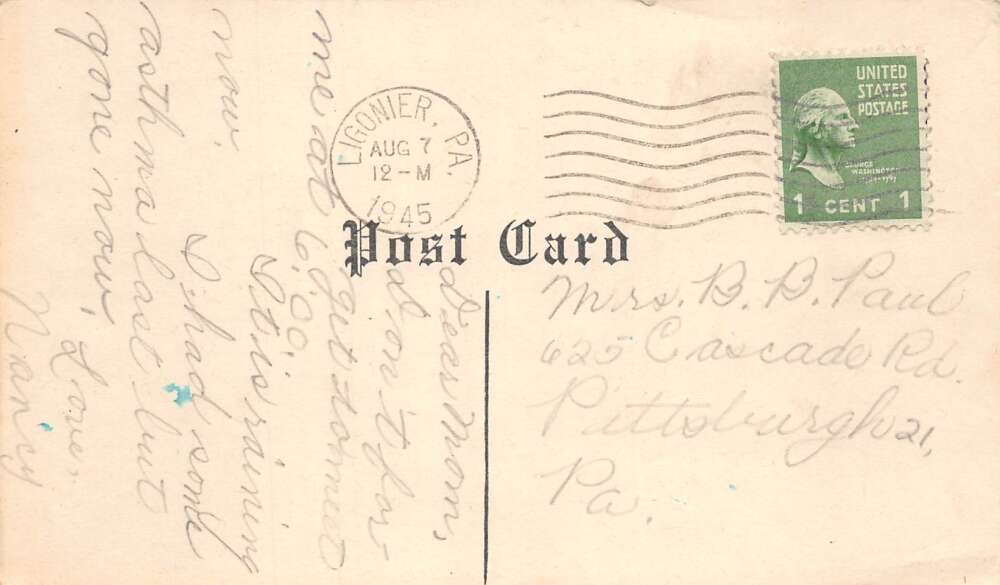 LIGONIER, PA.
AUG 7
12-M
1945
UNITED
STATES
POSTAGE
GEORGE
WASHINGTON
1 CENT 1
Post Card
Dear Mom,
Don't for
get to meet
me at 6:00.
It is raining
now.
I had some
asthma last but
gone now,
Love,
Nancy
Mrs. B. B. Paul
625 Cascade Rd.
Pittsburgh 21,
Pa.